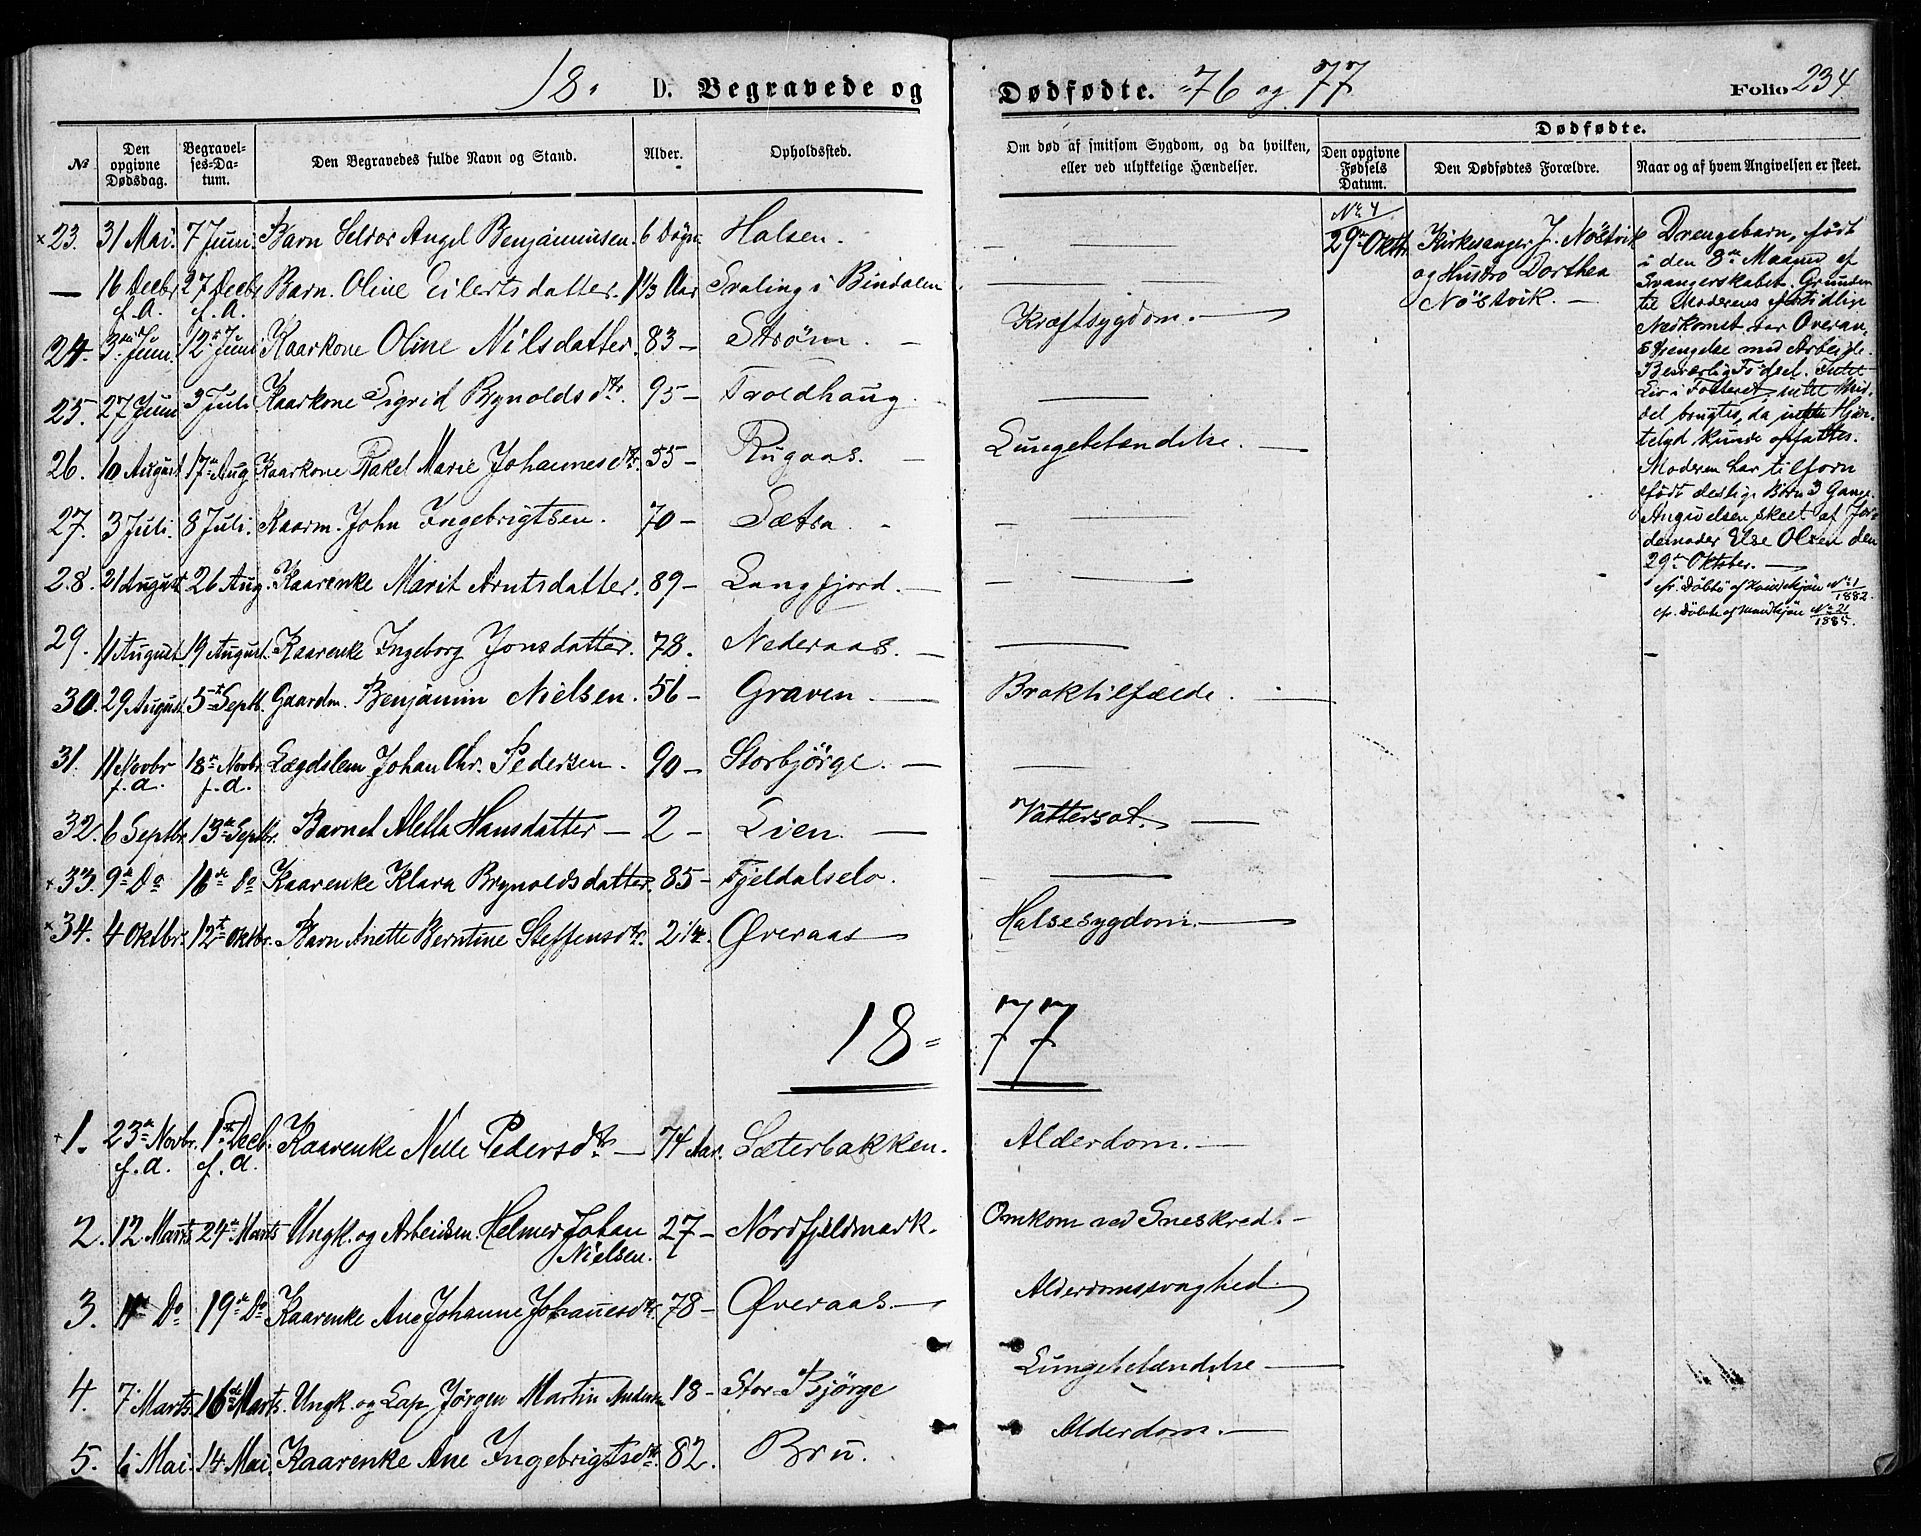 18. D. Begravede og Dødfødte. 76 og 77 Folio 234
№ Den opgivne Dødsdag. Begravelses-Datum. Den Begravedes fulde Navn og Stand. Alder. Opholdssted. Om død af smitsom Sygdom, og da hvilken, eller ved ulykkelige Hændelser. Dødfødte. Den opgivne Fødsels Datum. Den Dødfødtes Forældre. Naar og af hvem Angivelsen er skeet.
× 23. 31 Mai. 7 Juni. Barn Seldor Angel Benjaminsen. 6 Døgn Halsen. — —
— 16 Decbr f. A. 27 Decbr f. A. Barn. Oline Eilertsdatter. 1 1/3 Aar Svaling i Bindalen —
24. 3die Juni. 12te Juni Kaarkone Oline Nilsdatter. 83 — Strøm. — Kræftsygdom. —
25. 27 Juni 3 Juli Kaarkone Sigrid Brynoldsdtr. 95 — Troldhaug. —
26. 10 August 17de Aug Kaarkone Rakel Marie Johannesdtr. 55 — Rugaas. — Lungebetændelse. —
27. 3 Juli. 8 Juli. Kaarm. John Ingebrigtsen. 70 — Sætra - — —
28. 21 August 26 Aug. Kaarenke Marit Arntsdatter. 89 — Langfjord. — — —
29. 11 August 19 August. Kaarenke Ingeborg Jonsdatter. 78. Nederaas. — —
30. 29 August. 5te Septb. Gaardm. Benjamin Nielsen. 56 — Graven. — Broktilfælde. —
31. 11 Novbr f. a. 18de Novbr. f. a. Lægdslem Johan Chr. Pedersen. 90 — Storbjörge. — —
32. 6 Septbr. 13de Septbr. Barnet Aletta Hansdatter — 2 — Lien. — Vattersot. —
× 33. 9de Do 16de Do Kaarenke Klara Brynoldsdatter. 85 — Fjeldalselv. — —
× 34. 4 Oktbr. 12te Oktbr. Barn Anette Berntine Steffensdtr. 2 1/4. Øveraas — Halsesygdom. —
№ 4
29de Oktbr. Kirkesanger J. Nöstvik
og Hustro Dorthea
Nöstvik. —
Drengebarn, født
i den 8de Maaned af
Svangerskabet. Grunden
til Moderens fortidlige
Nedkomst var Overan-
strengelse med Arbeide.
Besværlig Födsel. Intet
Liv i Fosteret, intet Mid-
del brugtes, da intet Hjer-
telyd kunde opfattes.
Moderen har tilforn
født deslige Børn 3 Gange.
Angivelsen skeet af Jor-
demoder Else Olsen den
29de Oktober. —
cfr. Döbte af Kvindekjön № 1/1882.
cfr. Döbte af Mandkjön № 21/1885.
18 = 77
× 1. 23de Novbr. f. a. 1ste Decb. f. a. Kaarenke Nelle Pedersdtr. — 74 Aar. Sæterbakken. Alderdom. —
2. 12 Marts 24de Marts Ungk. og Arbeidsm. Helmer Johan Nielsen. 27 — Nordfjeldmark. Omkom ved Sneskred. —
3. 11 Do 19de Do Kaarenke Ane Johanne Johannesdtr. 78 — Øveraas. — Alderdomssvaghed.
4. 7. Marts 16de Marts. Ungk. og Lap Jörgen Martin Andersen 18 — Stor-Björge Lungebetændelse —
5. 6 Mai. 14 Mai. Kaarenke Ane Ingebrigtsdtr. 82. Bru. Alderdom. —